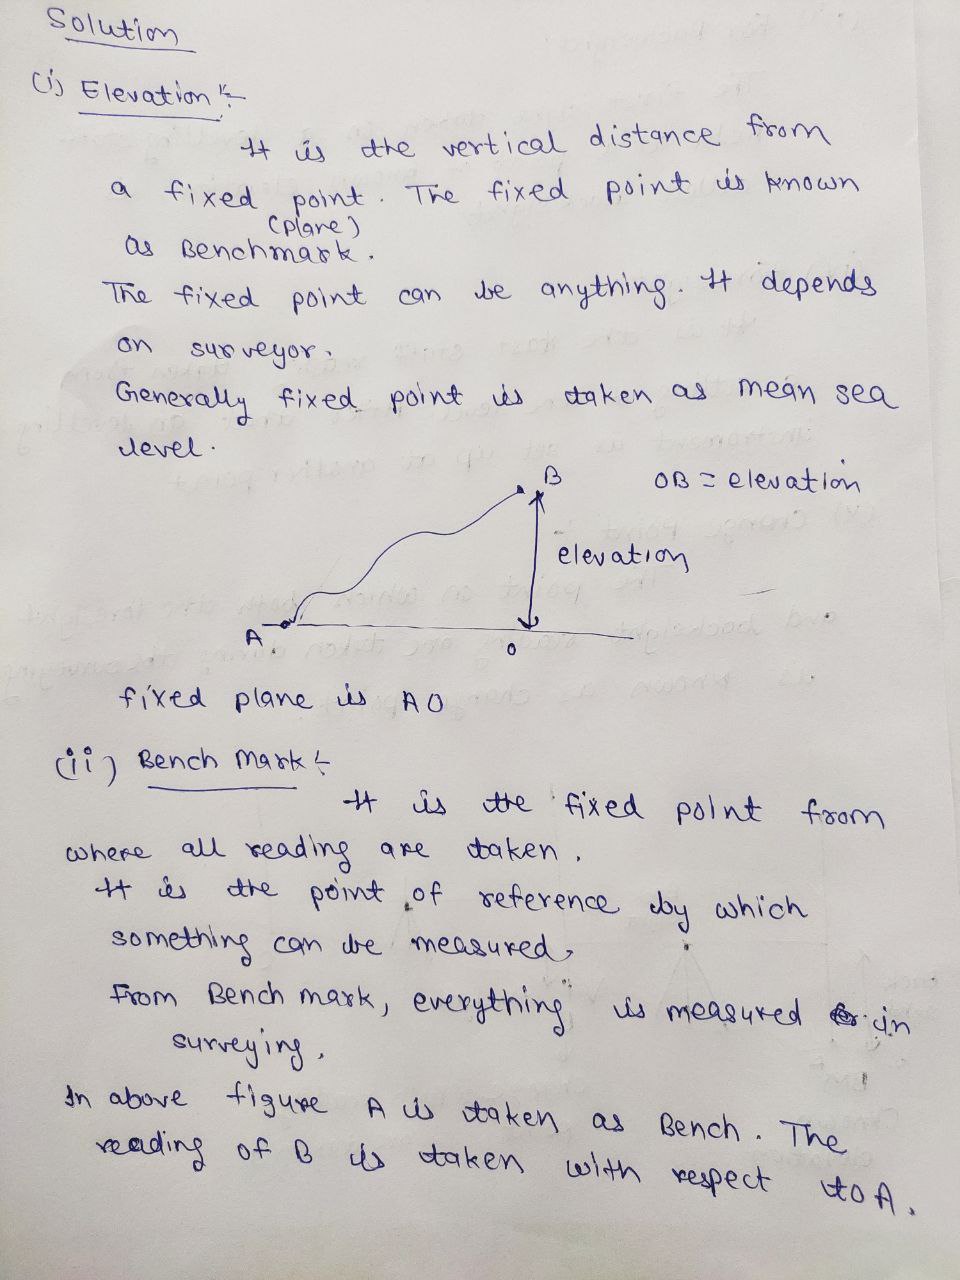 Solution
(i) Elevation :-
It is the vertical distance from
a fixed point. The fixed point is known
(plane)
as Benchmark.
The fixed point can be anything. It depends
on surveyor.
Generally fixed point is taken as mean sea
level.
B
OB = elevation
elevation
A
O
fixed plane is AO
(ii) Bench Mark :-
It is the fixed point from
where all reading are taken.
It is the point of reference by which
something can be measured.
From Bench mark, everything is measured in
surveying.
In above figure A is taken as Bench. The
reading of B is taken with respect to A.